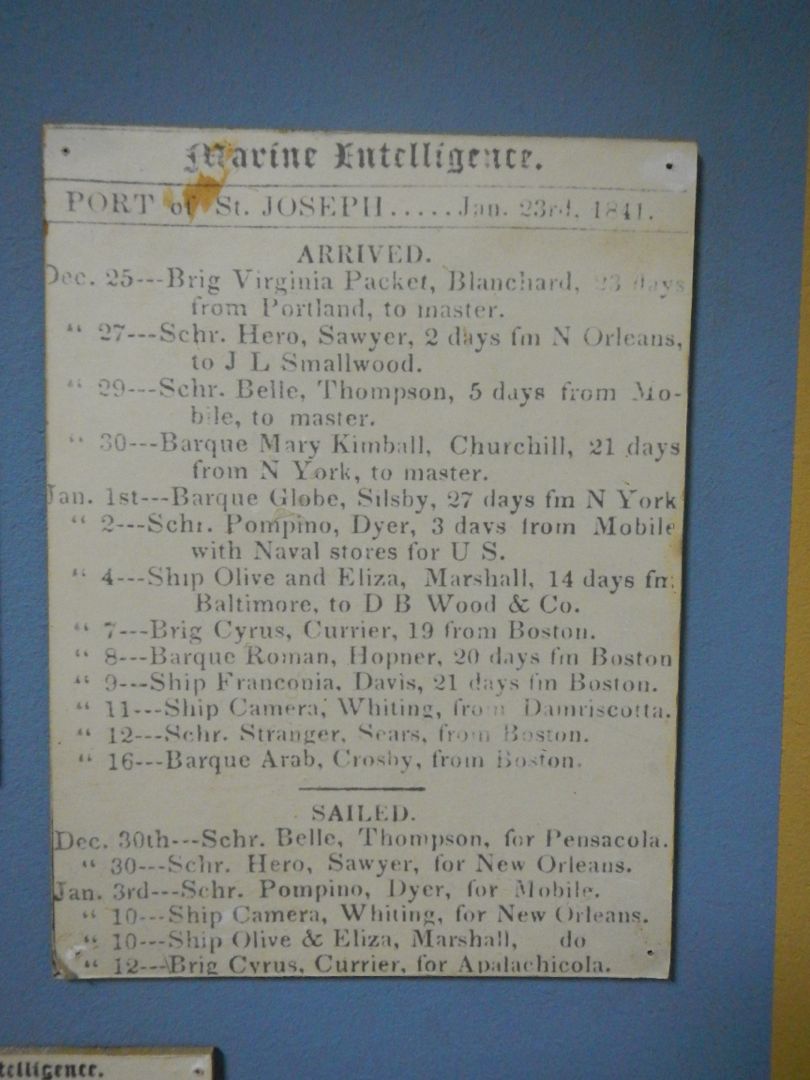 Marine Intelligence.
PORT of St. JOSEPH.....Jan. 23rd, 1841.
ARRIVED.
Dec. 25---Brig Virginia Packet, Blanchard, 23 days
from Portland, to master.
“ 27---Schr. Hero, Sawyer, 2 days fm N Orleans,
to J L Smallwood.
“ 29---Schr. Belle, Thompson, 5 days from Mo-
bile, to master.
“ 30---Barque Mary Kimball, Churchill, 21 days
from N York, to master.
Jan. 1st---Barque Globe, Silsby, 27 days fm N York
“ 2---Schr. Pompino, Dyer, 3 days from Mobile
with Naval stores for U S.
“ 4---Ship Olive and Eliza, Marshall, 14 days fm
Baltimore, to D B Wood & Co.
“ 7---Brig Cyrus, Currier, 19 from Boston.
“ 8---Barque Roman, Hopner, 20 days fm Boston
“ 9---Ship Franconia, Davis, 21 days fm Boston.
“ 11---Ship Camera, Whiting, from Damriscotta.
“ 12---Schr. Stranger, Sears, from Boston.
“ 16---Barque Arab, Crosby, from Boston.
SAILED.
Dec. 30th---Schr. Belle, Thompson, for Pensacola.
“ 30---Schr. Hero, Sawyer, for New Orleans.
Jan. 3rd---Schr. Pompino, Dyer, for Mobile.
“ 10---Ship Camera, Whiting, for New Orleans.
“ 10---Ship Olive & Eliza, Marshall, do
“ 12---Brig Cyrus, Currier, for Apalachicola.
telligence.